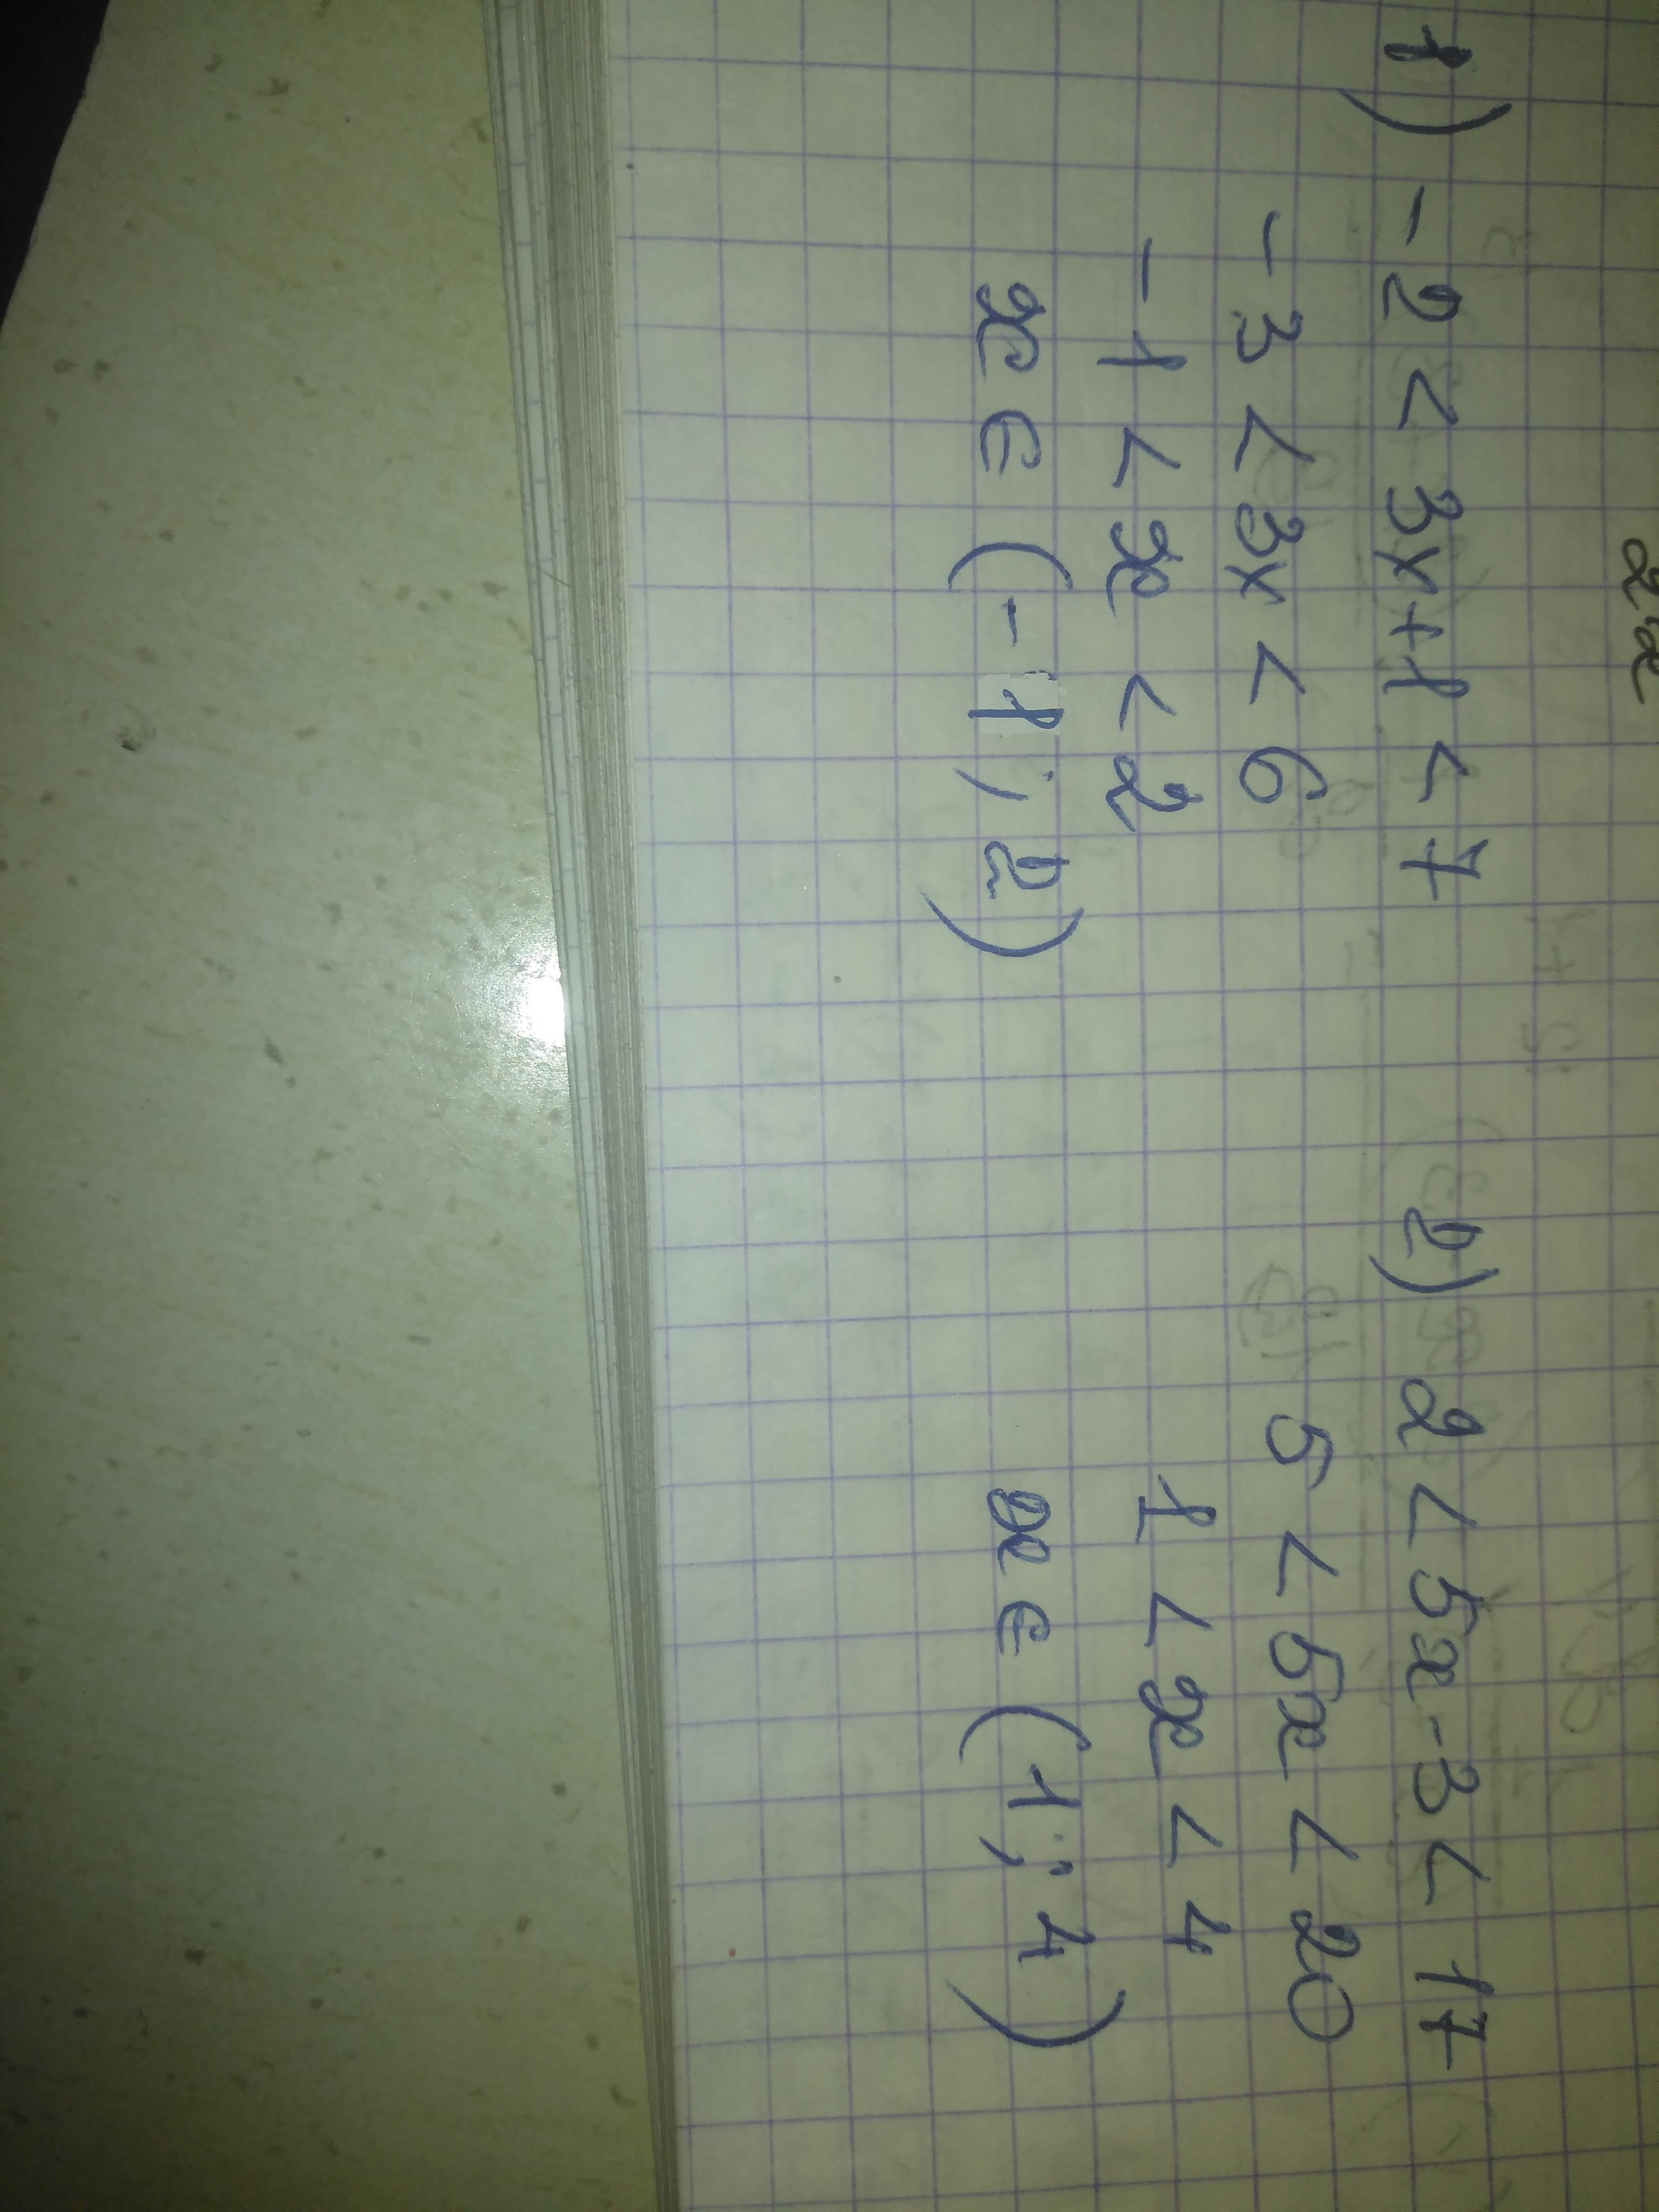 2x
1) -2 < 3x+1 < 7
-3 < 3x < 6
-1 < x < 2
x ∈ (-1; 2)
2) 2 < 5x-3 < 17
5 < 5x < 20
1 < x < 4
x ∈ (1; 4)